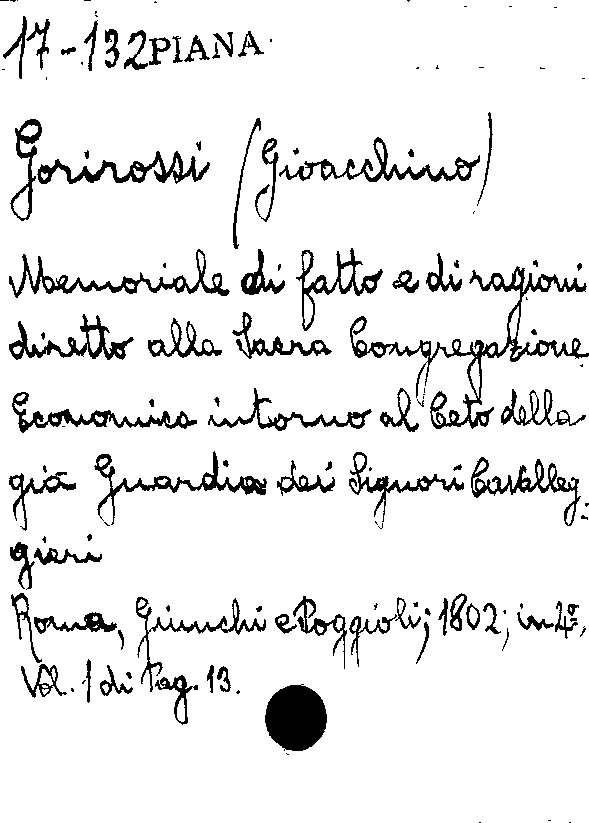 17-132 PIANA
Gorirossi (Gioacchino)
Memoriale di fatto e di ragioni
diretto alla Sacra Congregazione
Economica intorno al Ceto della
già Guardia dei Signori Cavalleg-
gieri
Roma, Giunchi e Poggioli; 1802; in 4º,
Vol. 1 di Pag. 13.